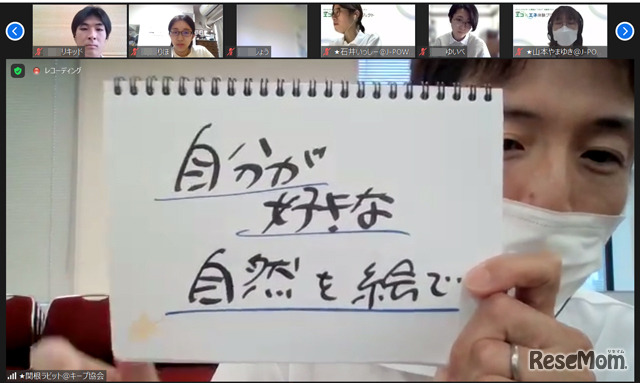 リキッド
りほ
しょう
★石井いっしー@J-POW
ゆいぺ
★山本やまゆき@J-PO
レコーディング
自分が
好きな
自然を絵で
★関根ラビット@キープ協会
リセマム
ReseMom